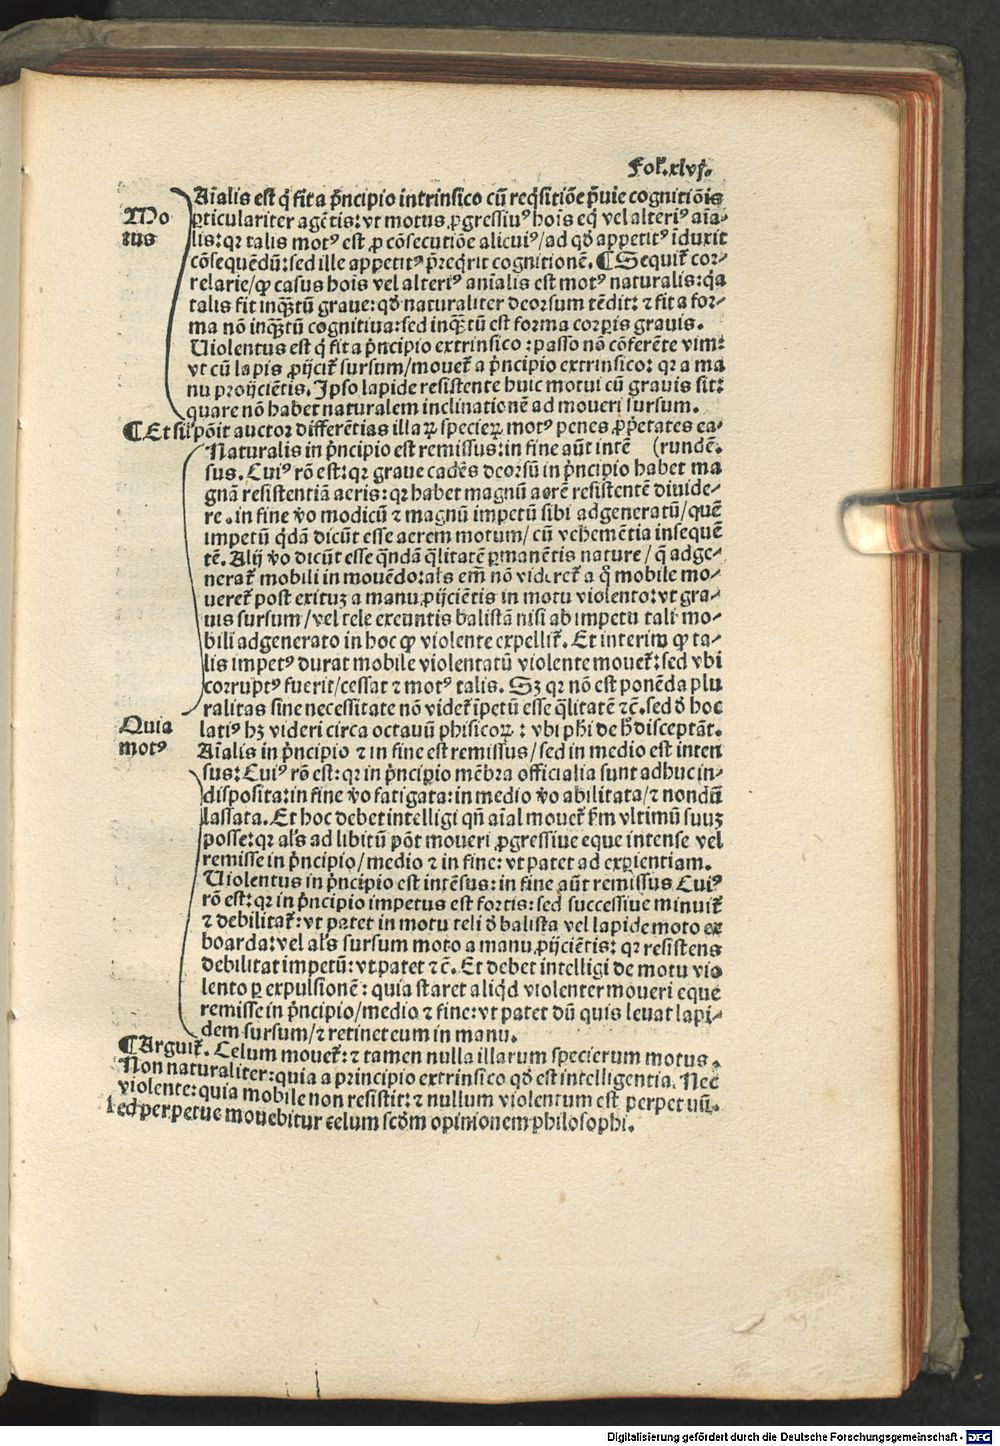 Fol. xlvj.
Aīalis est q̇ fit a pⁱncipio intrinsico cū reqⁱsitiōe p̄uie cognitiōis
Mo
tus
ꝑticulariter agētis: vt motus ꝓgressiuꝰ hoīs eqⁱ vel alteriꝰ aīa⸗
lis: qꝛ talis motꝰ est ꝓ cōsecutiōe alicuiꝰ/ad qď appetitꝰ īduxit
cōsequēdū: sed ille appetitꝰ p̄reqⁱrit cognitionē. ¶ Sequit̃ cor⸗
relarie/ꝙ casus hoīs vel alteriꝰ aīalis est motꝰ naturalis: qⁱa
talis fit inqᷓtū graue: qď naturaliter deorsum tēdit: ⁊ fit a for⸗
ma nō inqᷓtū cognitiua: sed inqᷓtū est forma corꝑis grauis.
Uiolentus est q̇ fit a pⁱncipio extrinsico: passo nō cōferēte vim:
vt cū lapis ꝓijcit̃ sursum/mouet̃ a pⁱncipio extrinsico: qꝛ a ma
nu proijciētis. Ipso lapide resistente huic motui cū grauis sit:
quare nō habet naturalem inclinationē ad moueri sursum.
¶ Et sil̃ pōit auctor differētias illaꝝ specieꝝ motꝰ penes ꝓp̃etates ea⸗
Naturalis in pⁱncipio est remissus: in fine aūt intē (rundē.
sus. Cuiꝰ rō est: qꝛ graue cadēs deorsū in pⁱncipio habet ma
gnā resistentiā aeris: qꝛ habet magnū aerē resistentē diuide⸗
re. in fine v̄o modicū ⁊ magnū impetū sibi adgeneratū/quē
impetū qⁱdā dicūt esse aerem motum/cū vehemētia insequē
tē. Alij v̄o dicūt esse qᷓndā qᷓlitatē ꝑmanētis nature/q̄ adge⸗
nerat̃ mobili in mouēdo: als em̄ nō videret̃ a q° mobile mo⸗
ueret̃ post exituꝫ a manu ꝓijciētis in motu violento: vt gra⸗
uis sursum/vel tele exeuntis balistā nisi ab impetu tali mo⸗
bili adgenerato in hoc ꝙ violente expellit̃. Et interim ꝙ ta⸗
lis impetꝰ durat mobile violentatū violente mouet̃: sed vbi
corruptꝰ fuerit/cessat ⁊ motꝰ talis. Sꝫ qꝛ nō est ponēda plu
ralitas sine necessitate nō videt̃ īpetū esse qᷓlitatē ⁊c̄. sed ď hoc
Quia
motꝰ
latiꝰ hꝫ videri circa octauū phisicoꝝ: vbi phi de h° disceptāt.
Aīalis in pⁱncipio ⁊ in fine est remissus/sed in medio est inten
sus: Cuiꝰ rō est: qꝛ in pⁱncipio mēbra officialia sunt adhuc in⸗
disposita: in fine v̄o fatigata: in medio v̄o abilitata/⁊ nondū
lassata. Et hoc debet intelligi qn̄ aīal mouet̃ ẜm vltimū suuꝫ
posse: qꝛ als ad libitū pōt moueri ꝓgressiue eque intense vel
remisse in pⁱncipio/medio ⁊ in fine: vt patet ad exꝑientiam.
Uiolentus in pⁱncipio est intēsus: in fine aūt remissus Cuiꝰ
rō est: qꝛ in pⁱncipio impetus est fortis: sed successiue minuit̃
⁊ debilitat̃: vt patet in motu teli ď balista vel lapide moto ex
boarda: vel als sursum moto a manu ꝓijciētis: qꝛ resistens
debilitat impetū: vt patet ⁊c̄. Et debet intelligi de motu vio
lento ꝑ expulsionē: quia staret aliqⁱd violenter moueri eque
remisse in pⁱncipio/medio ⁊ fine: vt patet dū quis leuat lapi⸗
dem sursum/⁊ retinet eum in manu.
¶ Arguit̃. Celum mouet̃: ⁊ tamen nulla illarum specierum motus.
Non naturaliter: quia a principio extrinsico qď est intelligentia. Nec
violente: quia mobile non resistit: ⁊ nullum violentum est perpetuū.
sed perpetue mouebitur celum scd̄m opinionem philosophi.
Digitalisierung gefördert durch die Deutsche Forschungsgemeinschaft - DFG